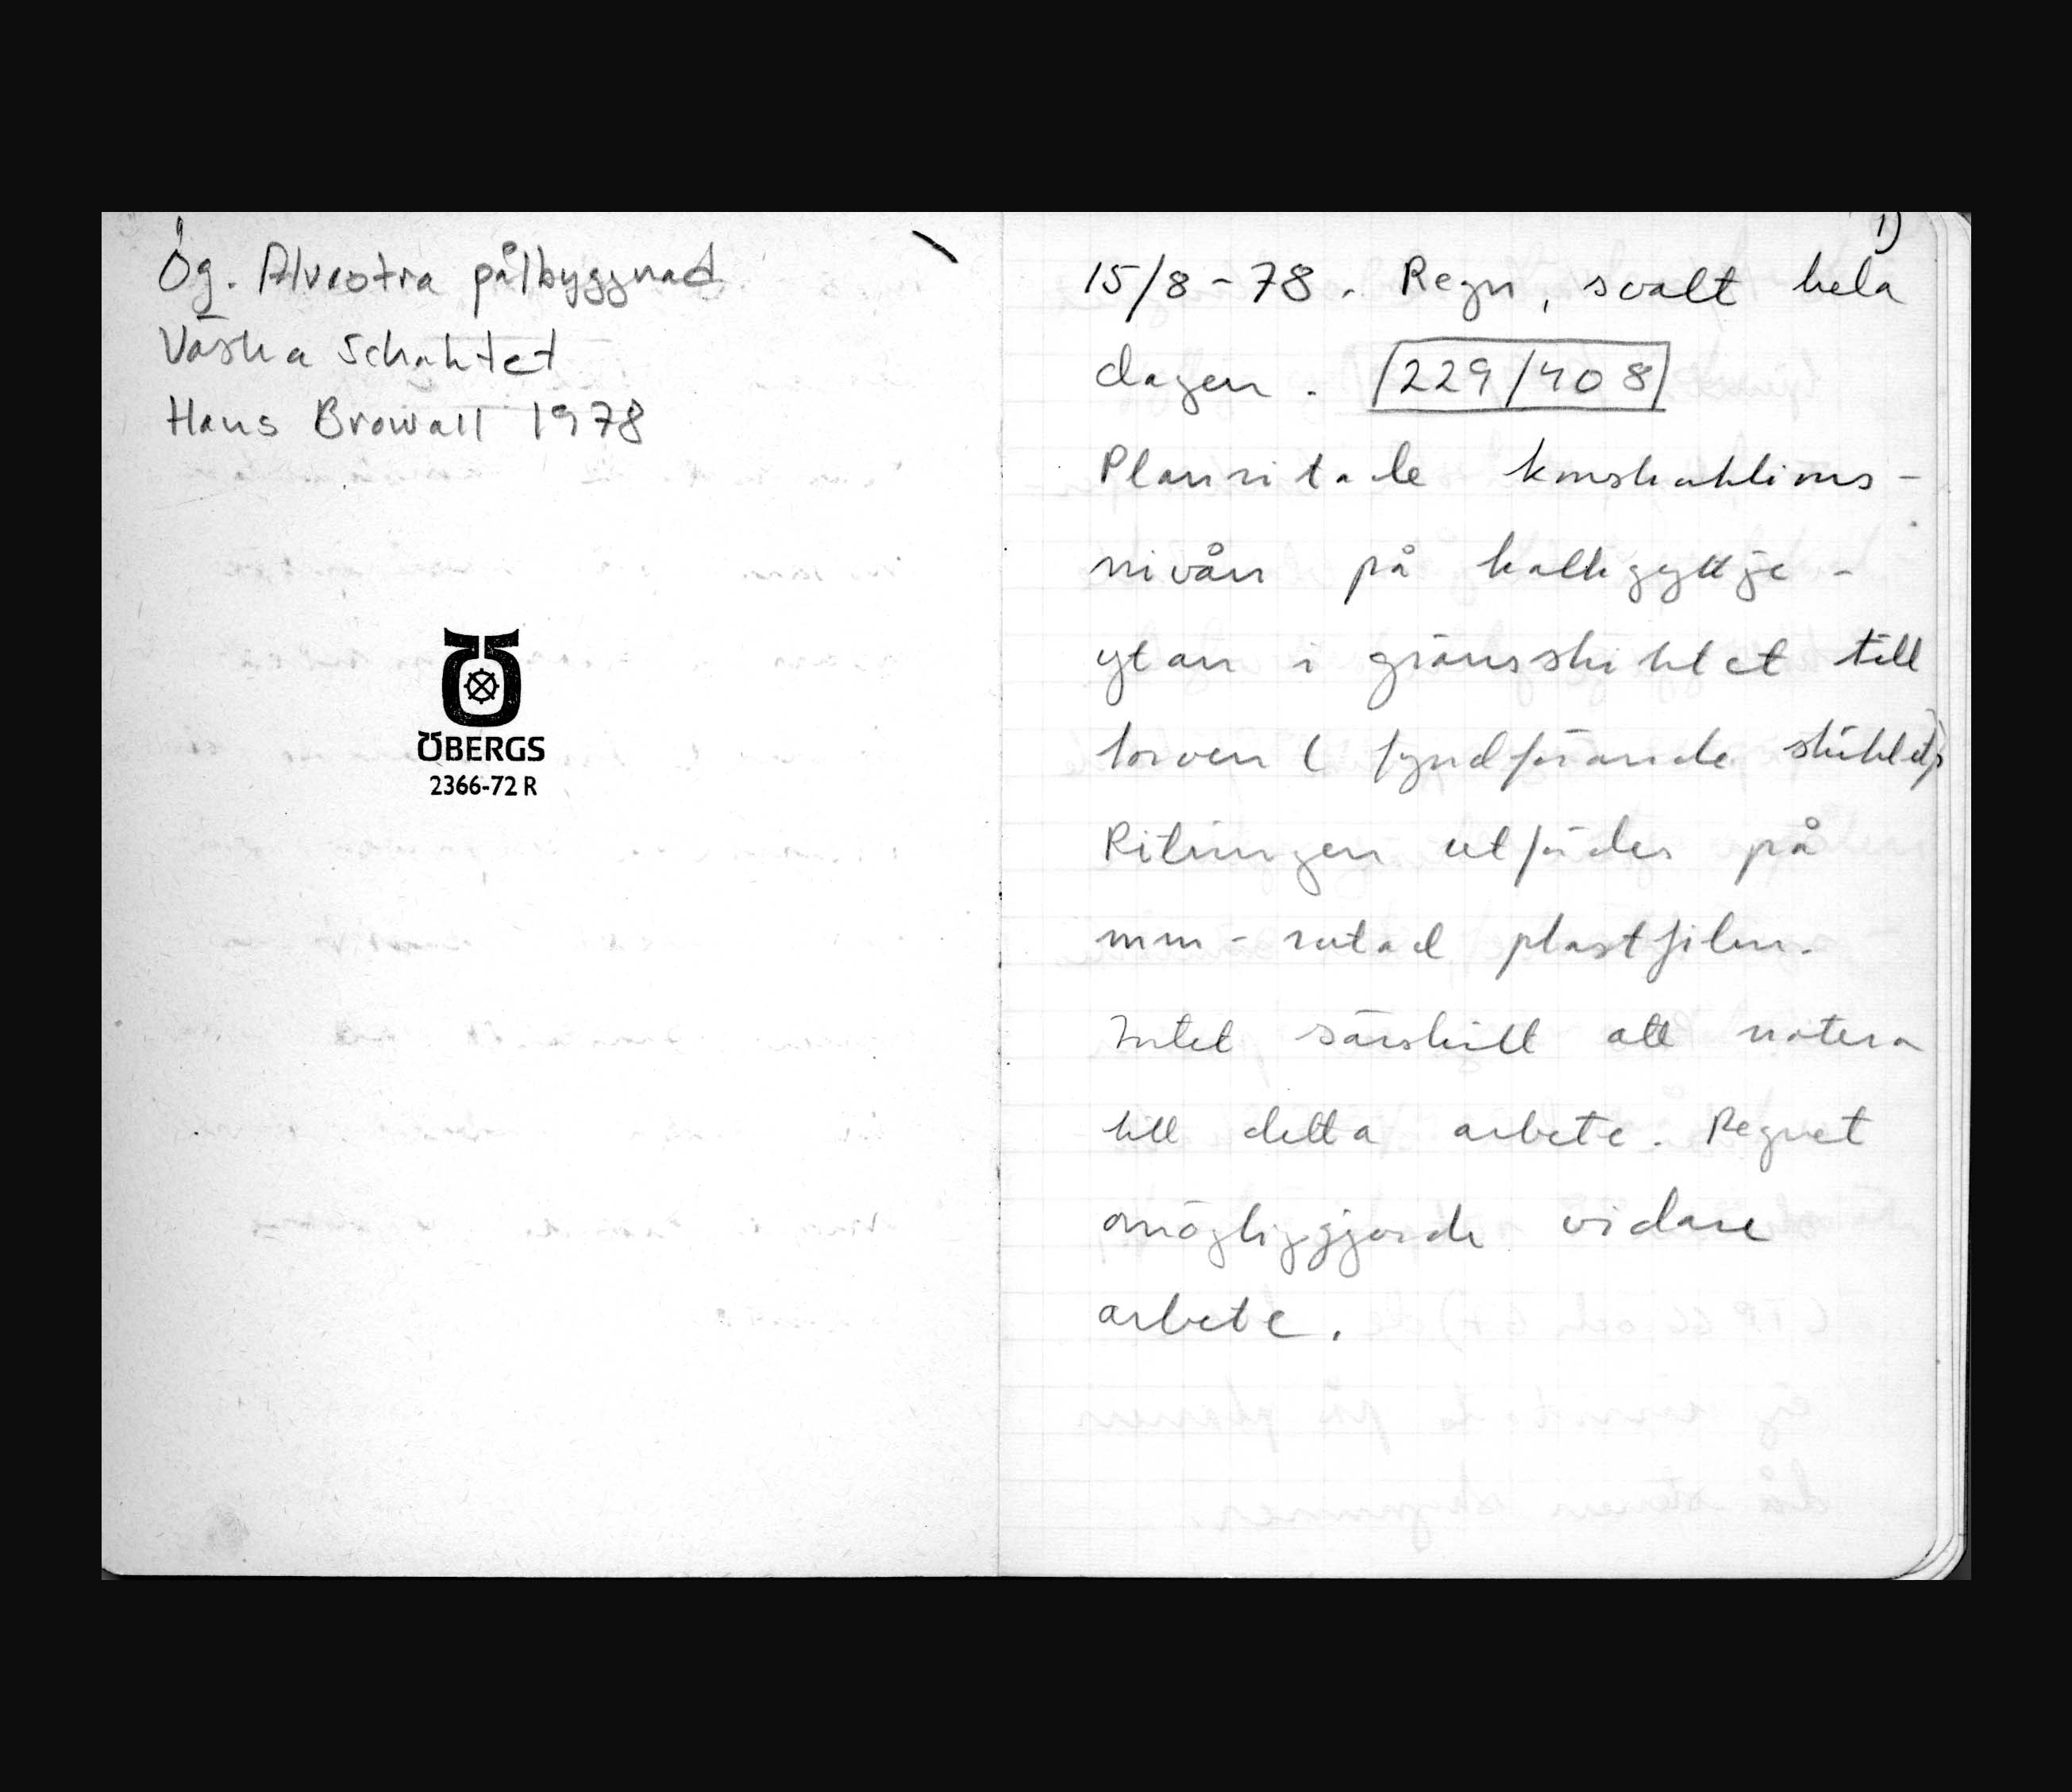 Ög. Alvastra pålbyggnad
Västra Schaktet
Hans Browall 1978
ÖBERGS
2366-72 R
1)
15/8-78. Regn, svalt hela
dagen. /229/408/
Planritade konstruktions-
nivån på kalkgyttje-
ytan i gränsskiktet till
torven (fyndförande skiktet)
Ritningen utfördes på
mm-rutad plastfilm.
Intet särskilt att notera
till detta arbete. Regnet
omöjliggjorde vidare
arbete.